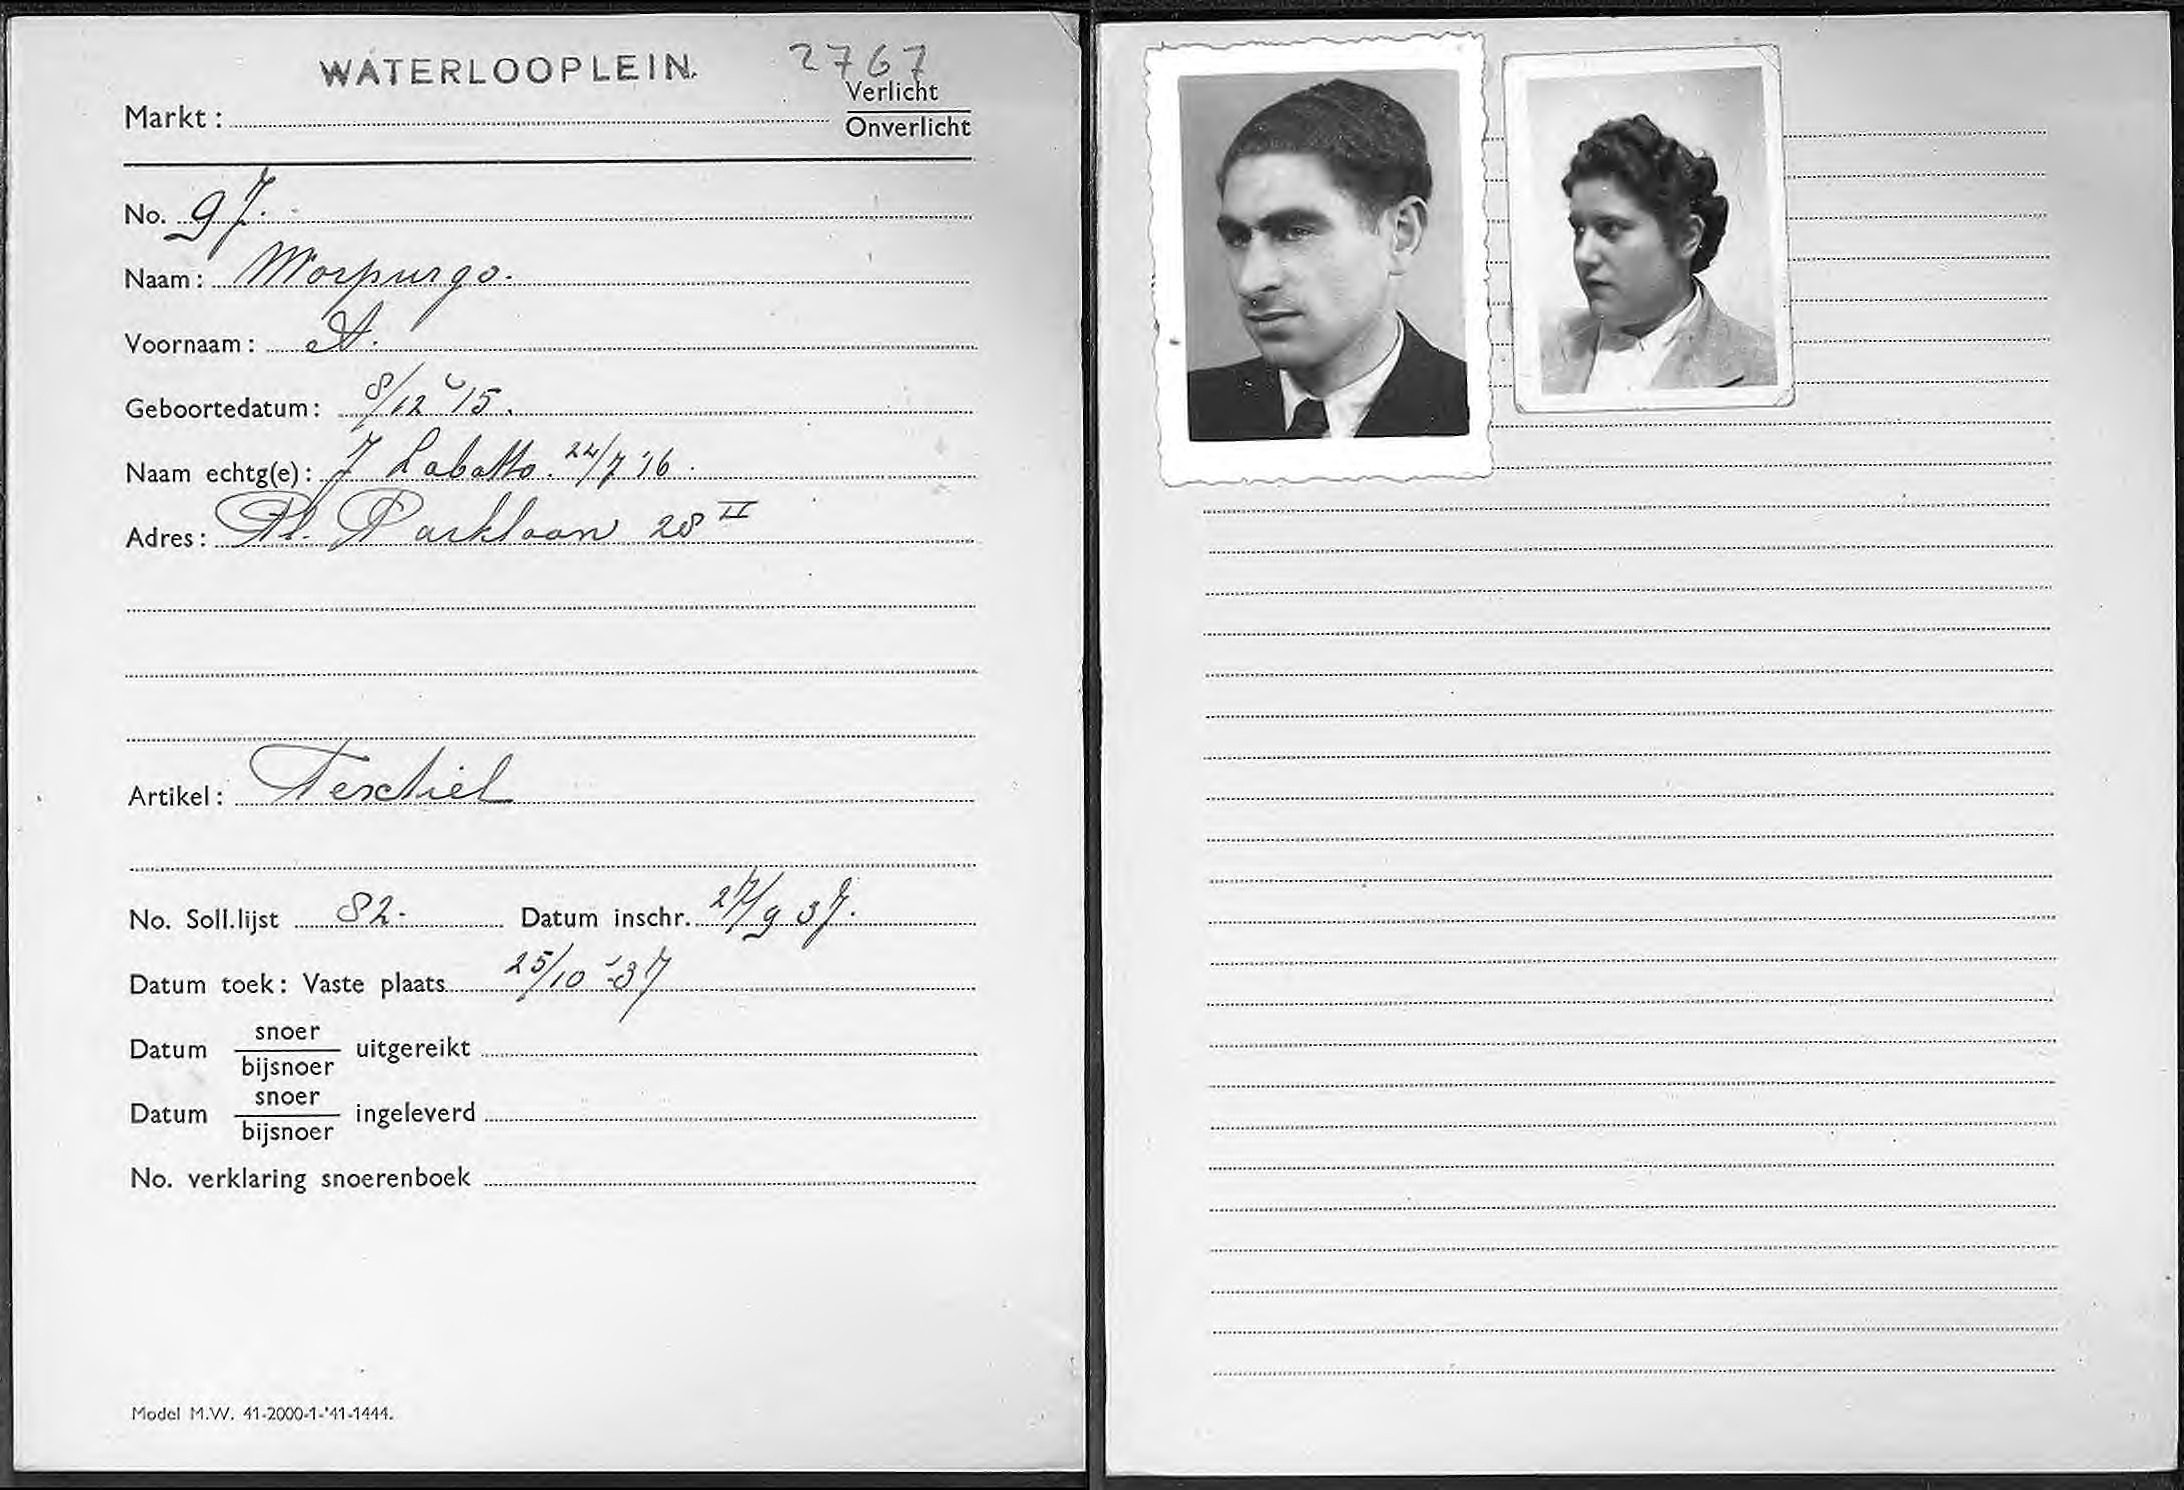 WATERLOOPLEIN. 2767
Markt: Verlicht
Onverlicht
No. 97.
Naam: Morpurgo.
Voornaam: A.
Geboortedatum: 8/12 '15.
Naam echtg(e): J Lobatto. 24/7 '16.
Adres: Pl. Parklaan 28 II
Artikel: Textiel
No. Soll.lijst 82. Datum inschr. 27/9 37.
Datum toek: Vaste plaats 25/10 '37
Datum snoer uitgereikt
bijsnoer
Datum snoer ingeleverd
bijsnoer
No. verklaring snoerenboek
Model M.W. 41-2000-1-'41-1444.